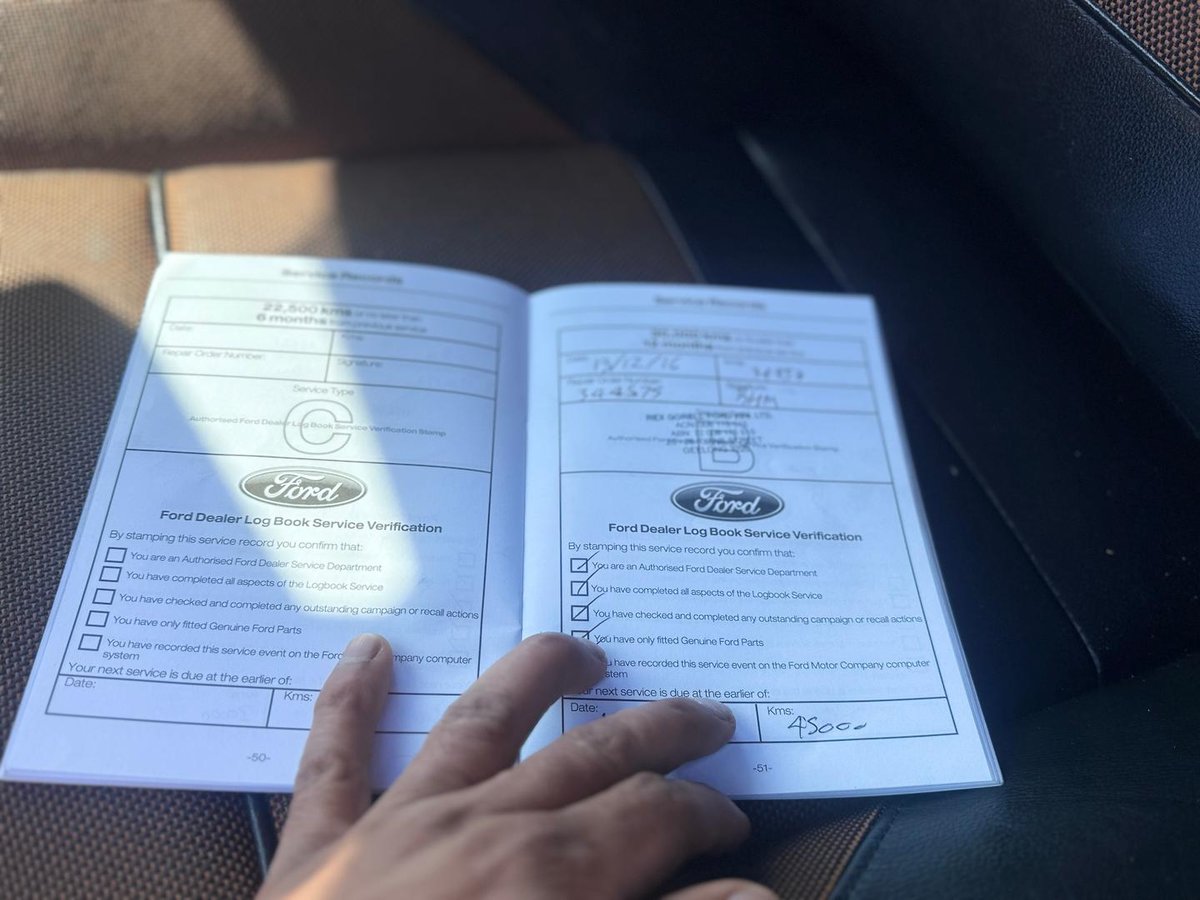 Service Records
22,500 kms or no less than
6 months from previous service
Date:
Repair Order Number:
Signature:
Service Type
C
Authorised Ford Dealer Log Book Service Verification Stamp
Ford
Ford Dealer Log Book Service Verification
By stamping this service record you confirm that:
You are an Authorised Ford Dealer Service Department
You have completed all aspects of the Logbook Service
You have checked and completed any outstanding campaign or recall actions
You have only fitted Genuine Ford Parts
You have recorded this service event on the Ford company computer
system
Your next service is due at the earlier of:
Date:
Kms:
-50-
Service Records
months
/12/16
Repair Order Number:
344575
Verification Stamp
Ford
Ford Dealer Log Book Service Verification
By stamping this service record you confirm that:
You are an Authorised Ford Dealer Service Department
You have completed all aspects of the Logbook Service
You have checked and completed any outstanding campaign or recall actions
You have only fitted Genuine Ford Parts
have recorded this service event on the Ford Motor Company computer
next service is due at the earlier of:
Date:
Kms:
45000
-51-